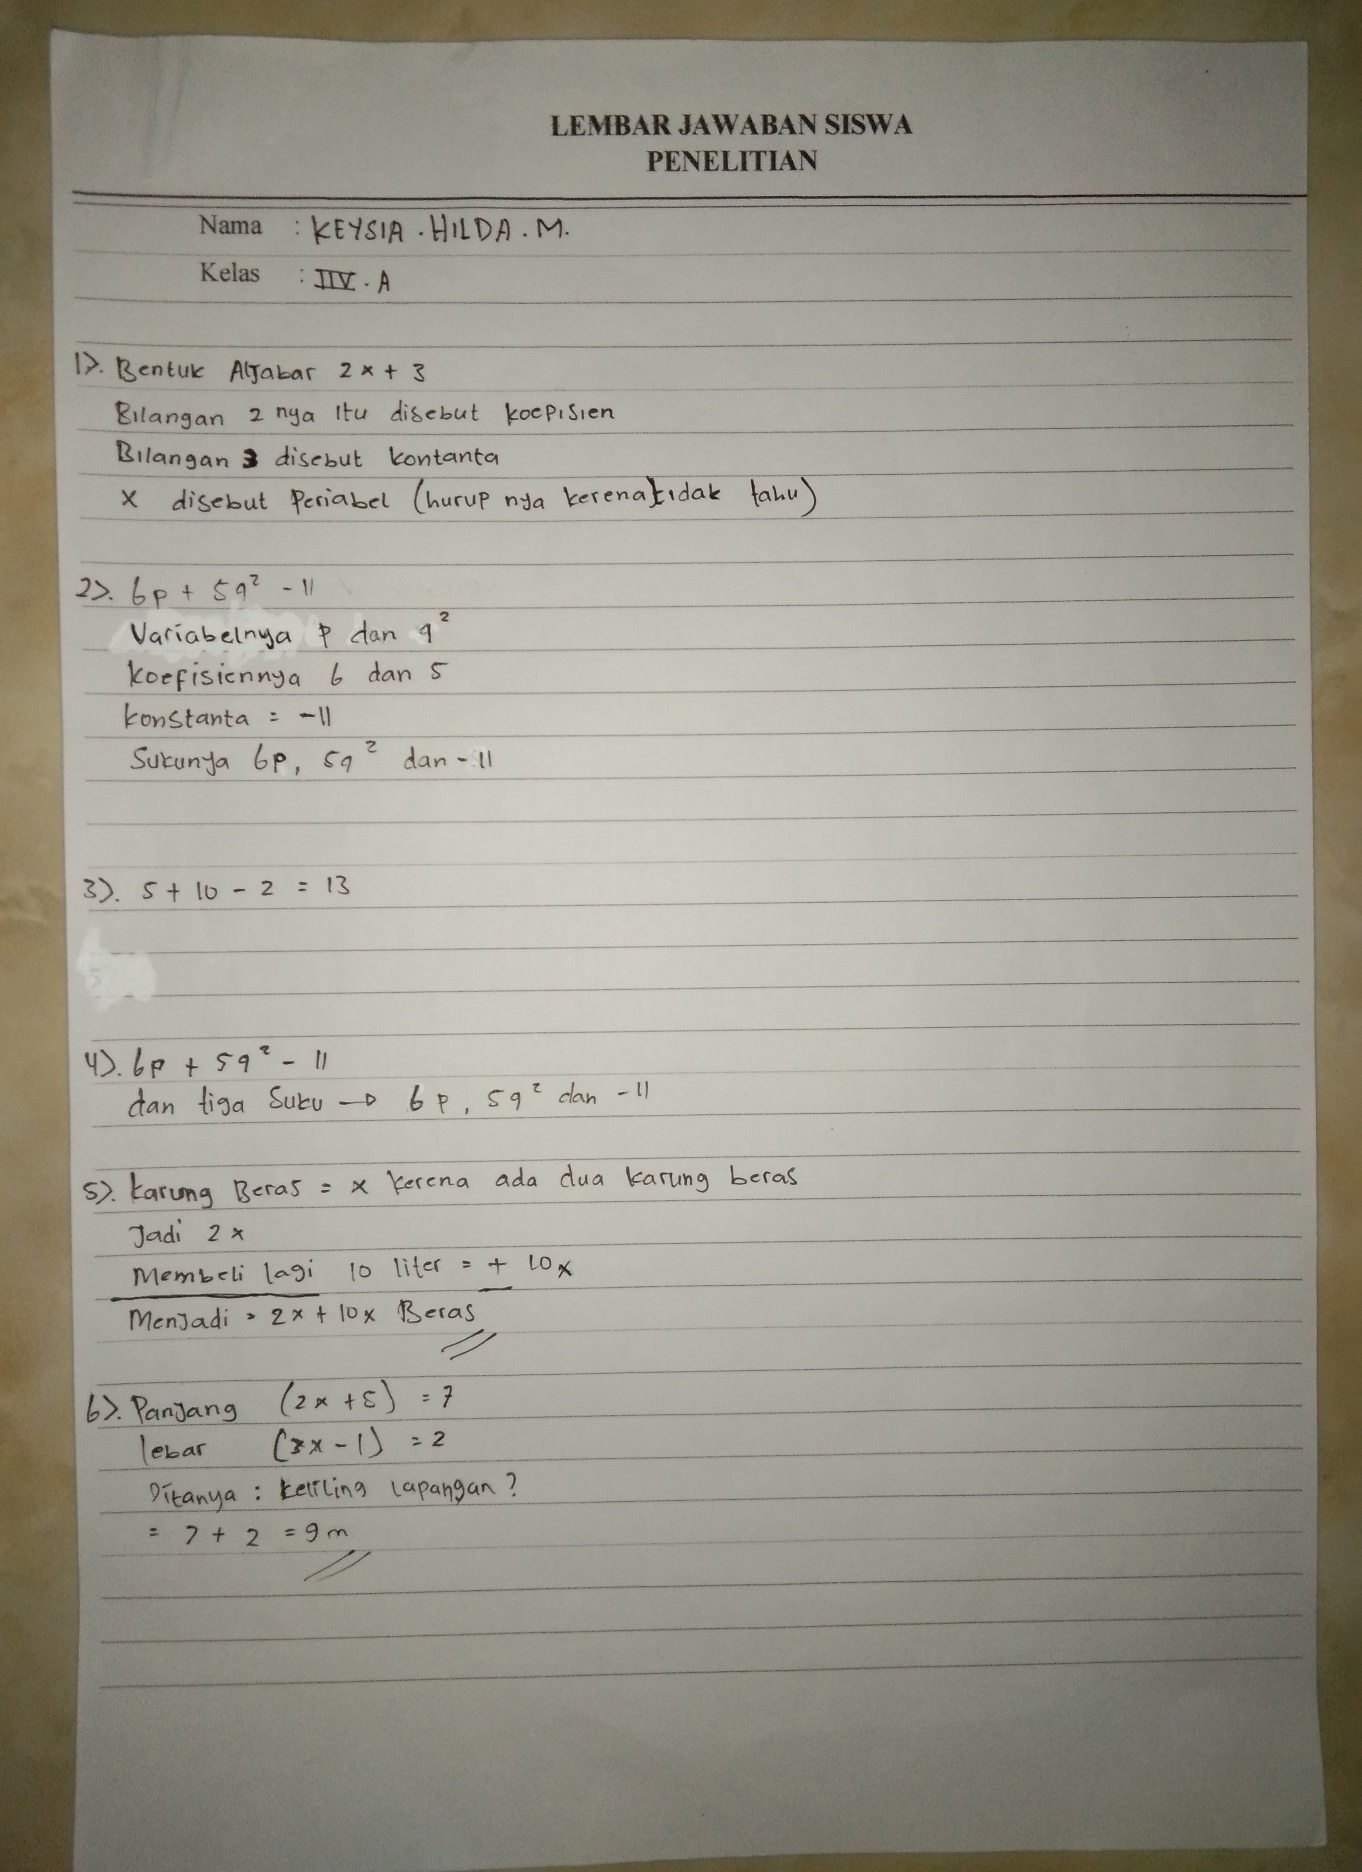 LEMBAR JAWABAN SISWA
PENELITIAN
Nama : KEYSIA . HILDA . M.
Kelas : IIV . A
1). Bentuk Aljabar 2x + 3
Bilangan 2 nya Itu disebut koepisien
Bilangan 3 disebut kontanta
x disebut Periabel (hurup nya kerena tidak tahu)
2). 6p + 5q² - 11
Variabelnya p dan q²
koefisiennya 6 dan 5
konstanta = -11
Sukunya 6p, 5q² dan - 11
3). 5 + 10 - 2 = 13
4). 6p + 5q² - 11
dan tiga Suku → 6p, 5q² dan - 11
5). karung Beras = x kerena ada dua karung beras
Jadi 2x
Membeli lagi 10 liter = + 10x
Menjadi = 2x + 10x Beras
6). Panjang (2x + 5) = 7
lebar (3x - 1) = 2
Ditanya : keliling lapangan ?
= 7 + 2 = 9 m